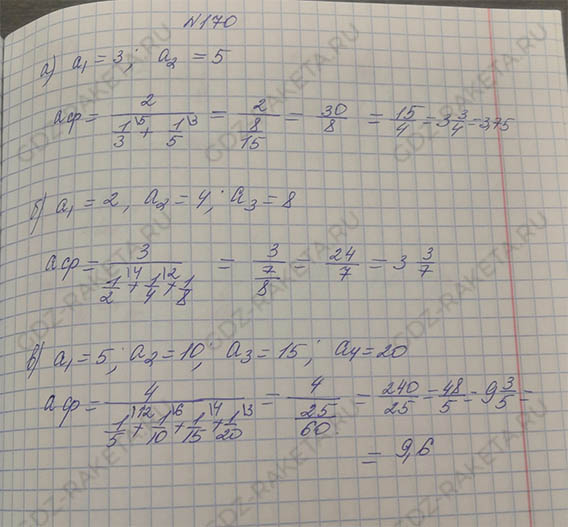 №170
а) a₁ = 3; a₂ = 5
aф = 2/(1/3\5 + 1/5\3) = 2/(8/15) = 30/8 = 15/4 = 3 3/4 = 3,75
б) a₁ = 2, a₂ = 4; a₃ = 8
aф = 3/(1/2\4 + 1/4\2 + 1/8) = 3/(7/8) = 24/7 = 3 3/7
в) a₁ = 5; a₂ = 10, a₃ = 15; a₄ = 20
aф = 4/(1/5\12 + 1/10\6 + 1/15\4 + 1/20\3) = 4/(25/60) = 240/25 = 48/5 = 9 3/5 =
= 9,6
GDZ-RAKETA.RU